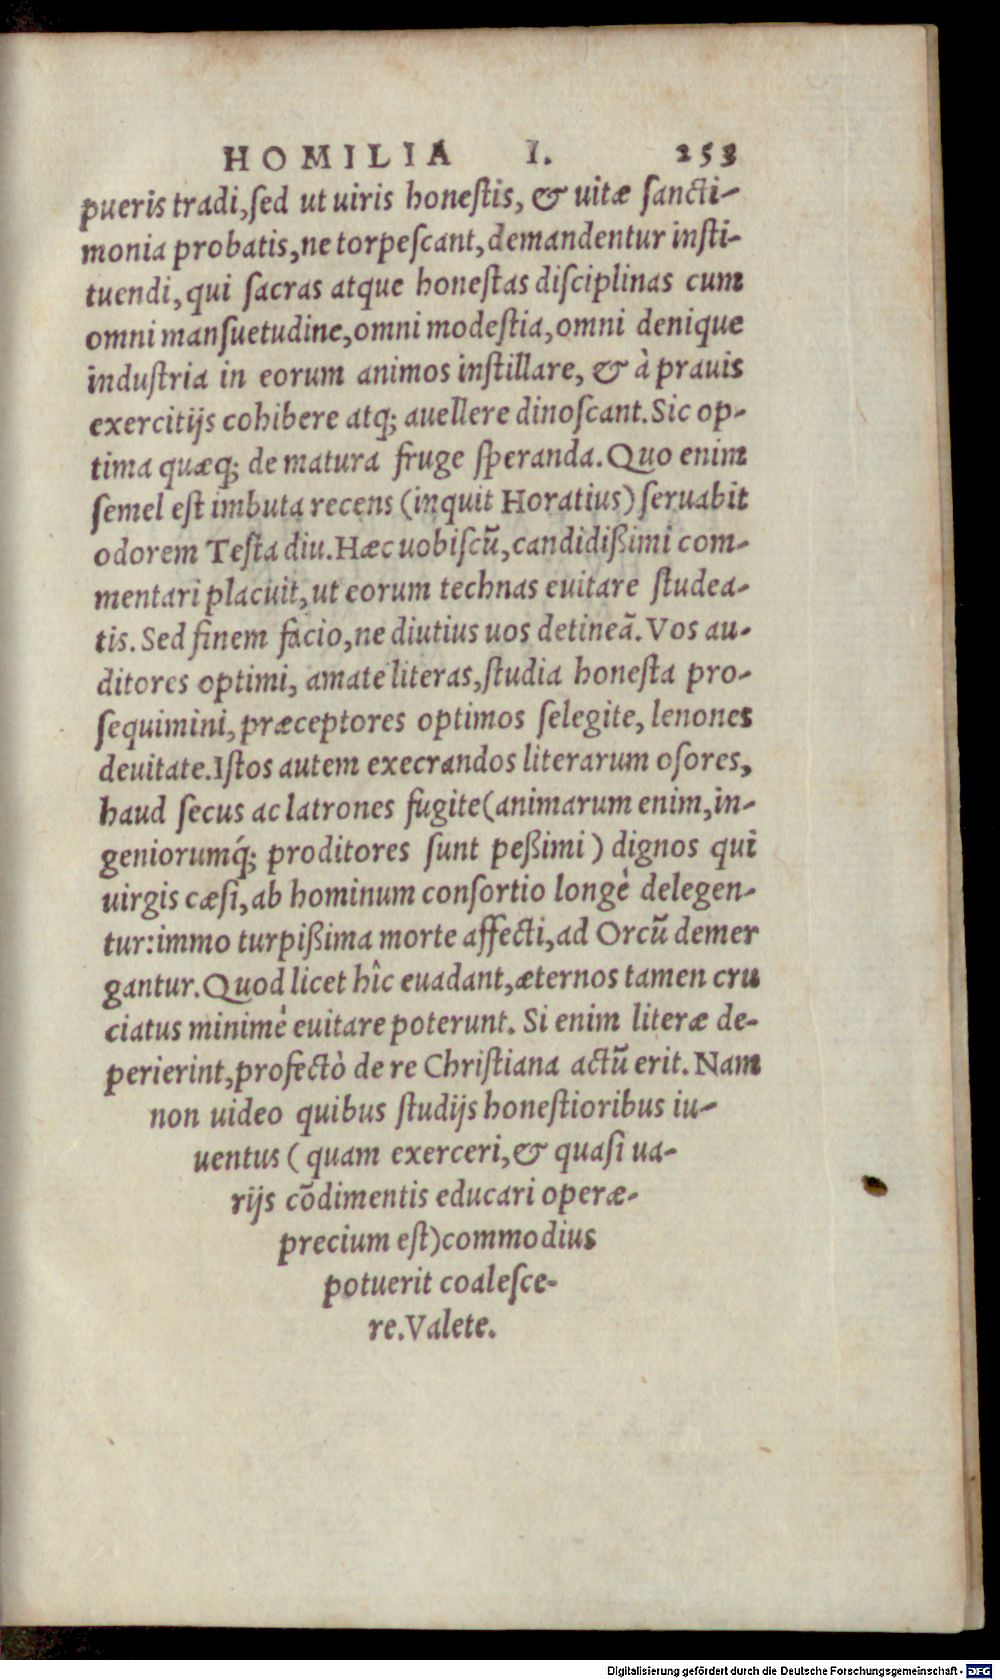 HOMILIA I. 253
pueris tradi, ſed ut uiris honeſtis, & uitæ ſancti-
monia probatis, ne torpeſcant, demandentur inſti-
tuendi, qui ſacras atque honeſtas diſciplinas cum
omni manſuetudine, omni modeſtia, omni denique
induſtria in eorum animos inſtillare, & à prauis
exercitijs cohibere atq; auellere dinoſcant. Sic op-
tima quæq; de matura fruge ſperanda. Quo enim
ſemel eſt imbuta recens (inquit Horatius) ſeruabit
odorem Teſta diu. Hæc uobiſcũ, candidißimi com-
mentari placuit, ut eorum technas euitare ſtudea-
tis. Sed finem facio, ne diutius uos detineã. Vos au-
ditores optimi, amate literas, ſtudia honeſta pro-
ſequimini, præceptores optimos ſelegite, lenones
deuitate. Iſtos autem execrandos literarum oſores,
haud ſecus ac latrones fugite (animarum enim, in-
geniorumq́; proditores ſunt peßimi) dignos qui
uirgis cæſi, ab hominum conſortio longè delegen-
tur: immo turpißima morte affecti, ad Orcũ demer
gantur. Quod licet hîc euadant, æternos tamen cru
ciatus minimè euitare poterunt. Si enim literæ de-
perierint, profectò de re Chriſtiana actũ erit. Nam
non uideo quibus ſtudijs honeſtioribus iu-
uentus (quam exerceri, & quaſi ua-
rijs cõdimentis educari operæ-
precium eſt) commodius
potuerit coaleſce-
re. Valete.
Digitalisierung gefördert durch die Deutsche Forschungsgemeinschaft - DFG